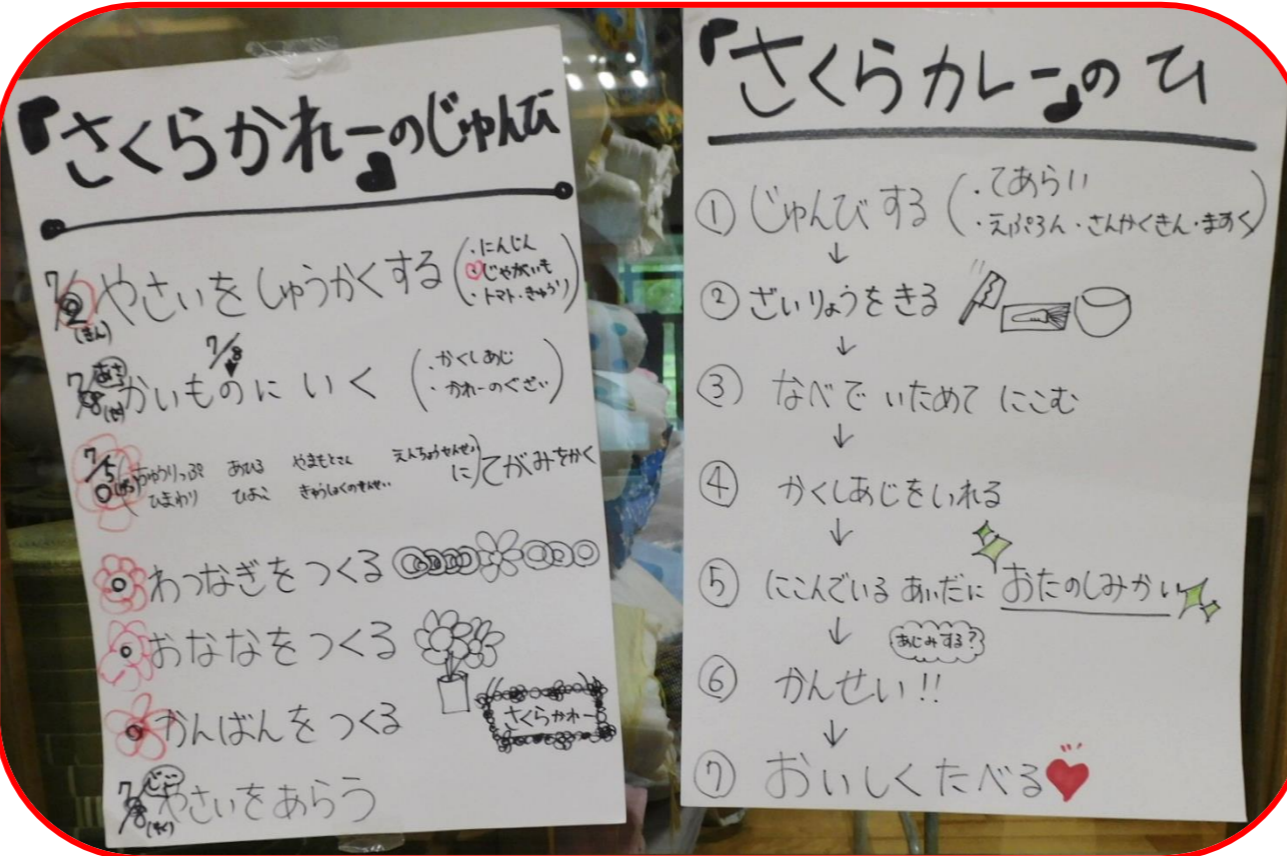 『さくらかれー』のじゅんび
7/2 (きん) やさいをしゅうかくする (・にんじん
・じゃがいも
・トマト・きゅうり)
7/8
7/8 あさ かいものにいく (・かくしあじ
・かれーのぐざい)
7/5 (げつ) (ちゅうりっぷ あひる やまもとさん えんちょうせんせい
ひまわり ひよこ きゅうしょくのせんせい に) てがみをかく
わっなぎをつくる
おななをつくる
かんばんをつくる
さくらかれー
7/8 やさいをあらう
『さくらカレー』のひ
① じゅんびする (・てあらい
・えぷろん・さんかくきん・ますく)
↓
② ざいりょうをきる
↓
③ なべで いためて にこむ
↓
④ かくしあじをいれる
↓
⑤ にこんでいる あいだに おたのしみかい
↓ あじみする?
⑥ かんせい!!
↓
⑦ おいしくたべる